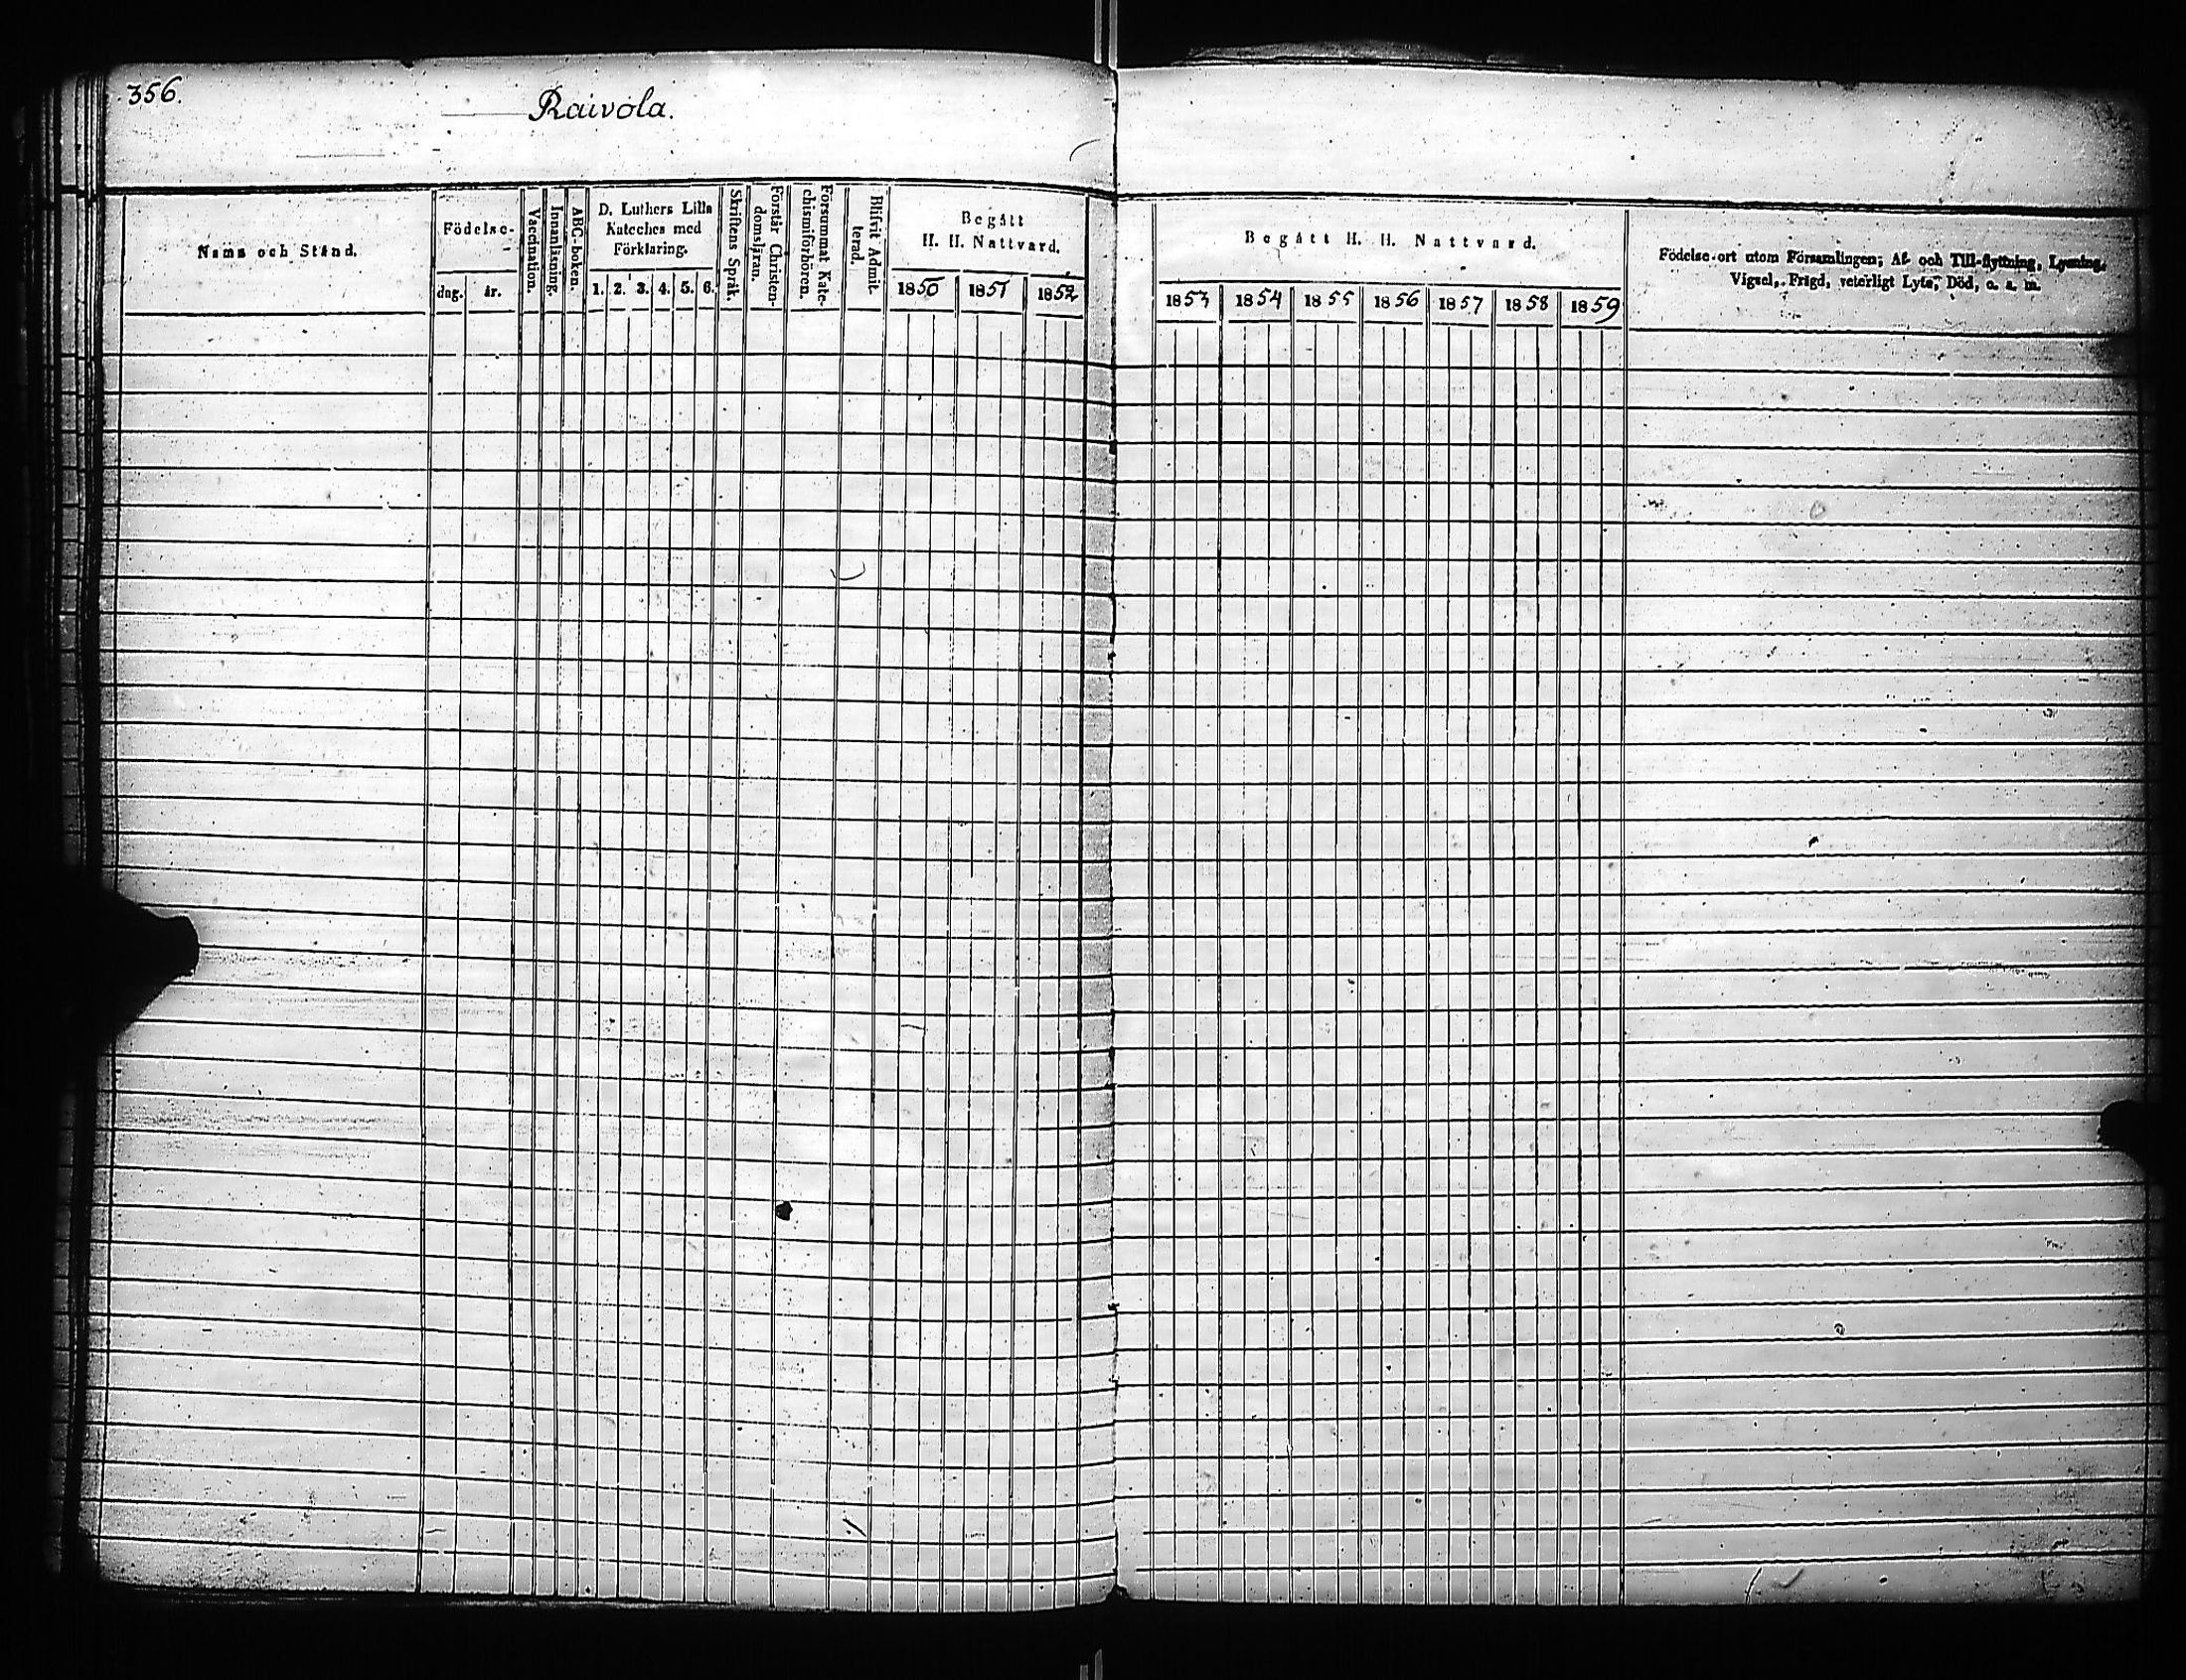 356.
Raivola.
Namn och Stånd.
Födelse-
dag.
år.
Vaccination.
Innanläsning.
ABC-boken.
D. Luthers Lilla
Kateches med
Förklaring.
1. 2. 3. 4. 5. 6.
Skriftens Språk.
Förstår Christen-
domsläran.
Försummat Kate-
chismiförhören.
Blifvit Admit-
terad.
Begått
H. H. Nattvard.
1850
1851
1852
Begått H. H. Nattvard.
1853
1854
1855
1856
1857
1858
1859
Födelse-ort utom Församlingen; Af- och Till-flyttning, Lysning,
Vigsel, Frigd, veterligt Lyte, Död, o. s. m.